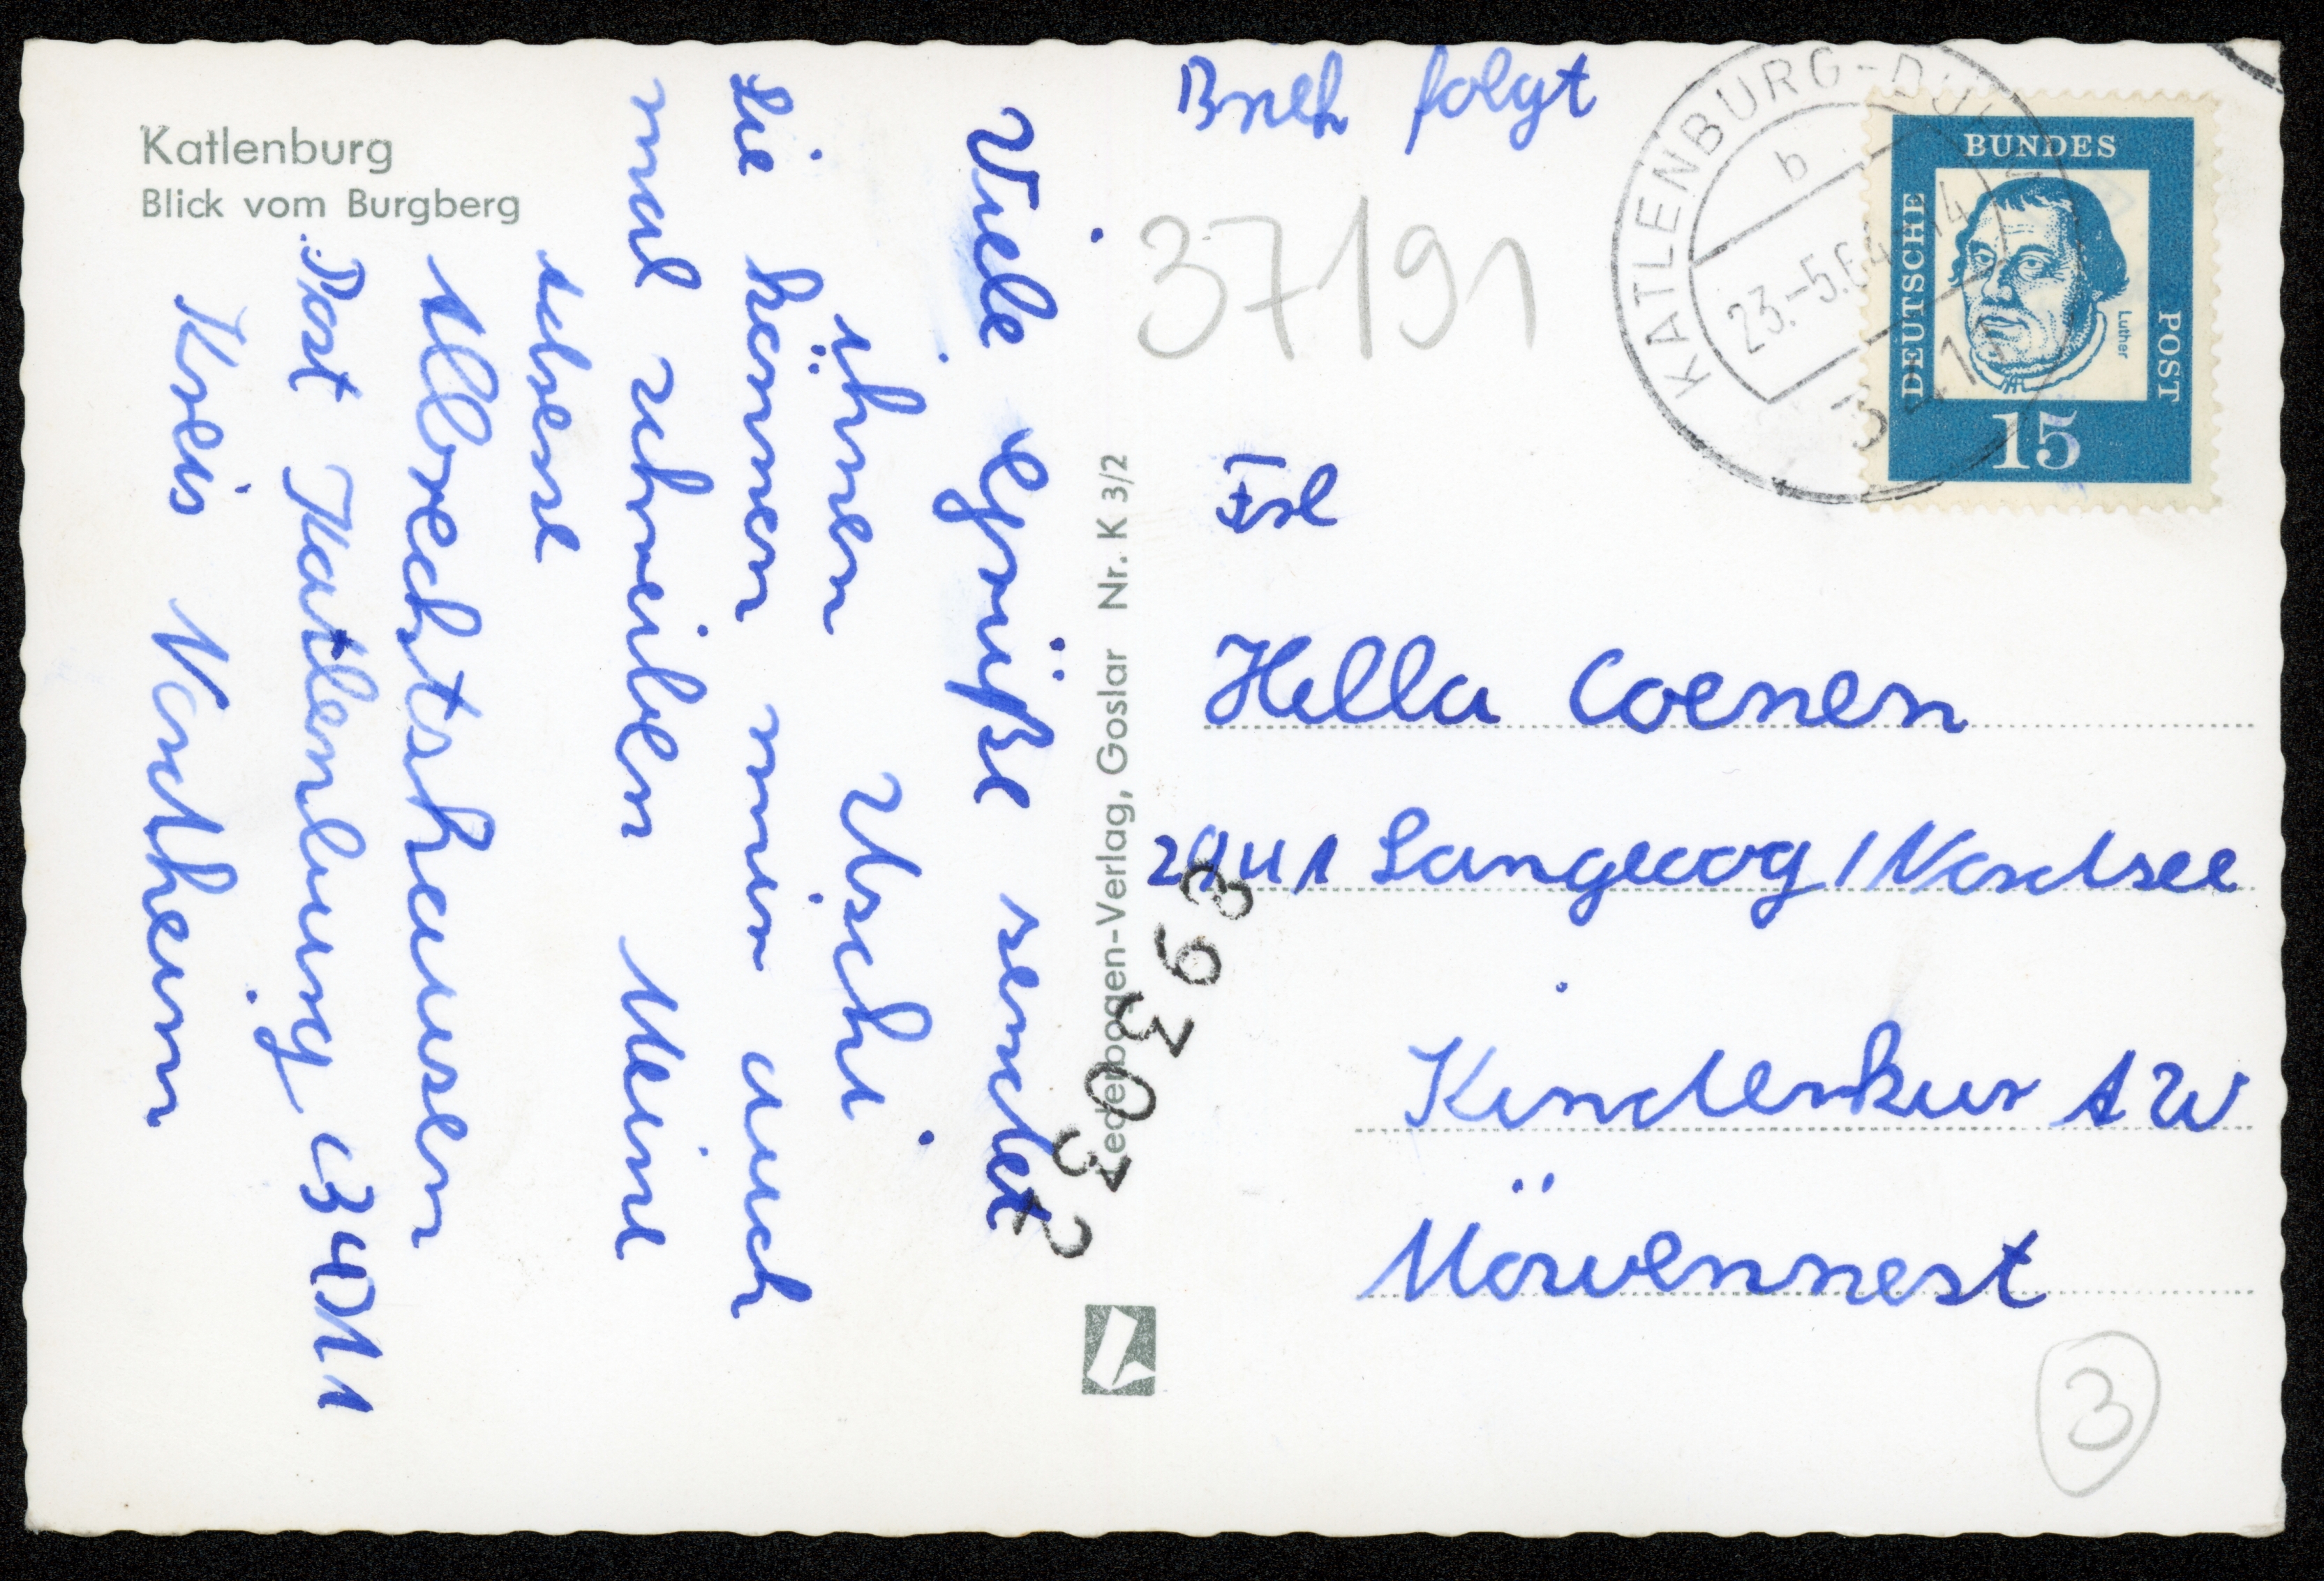 Katlenburg
Blick vom Burgberg
Viele Grüße sendet
ihnen Uschi
Sie können mir auch
mal schreiben Meine
adresse
Albrechtshausen
Post Katlenburg 3411
Kreis Northeim
Lederbogen-Verlag, Goslar Nr. K 3/2
Brief folgt
37191
KATLENBURG-DU
b
23.-5.64-14
DEUTSCHE BUNDES POST
Luther
15
Frl
Hella Coenen
2941 Langeoog / Nordsee
Kinderkur
Möwennest
3
393032